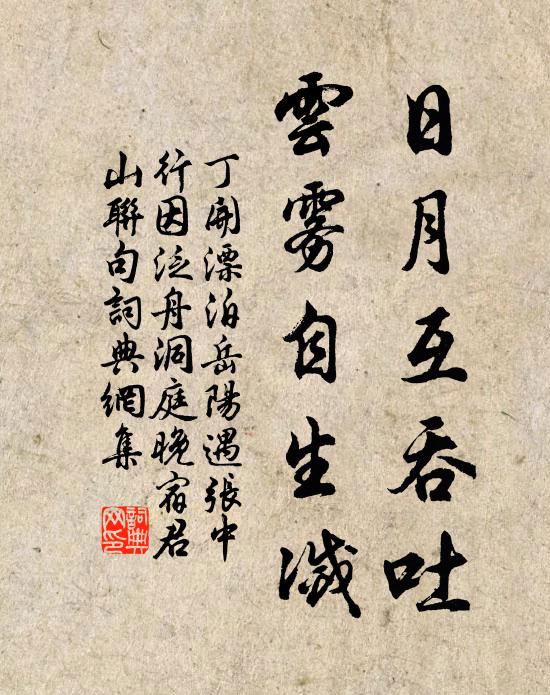 日月互吞吐
雲霧自生滅
丁開漂泊岳陽遇張中
行因泛舟洞庭晚宿君
山聯句詞典網集
詞典
网印